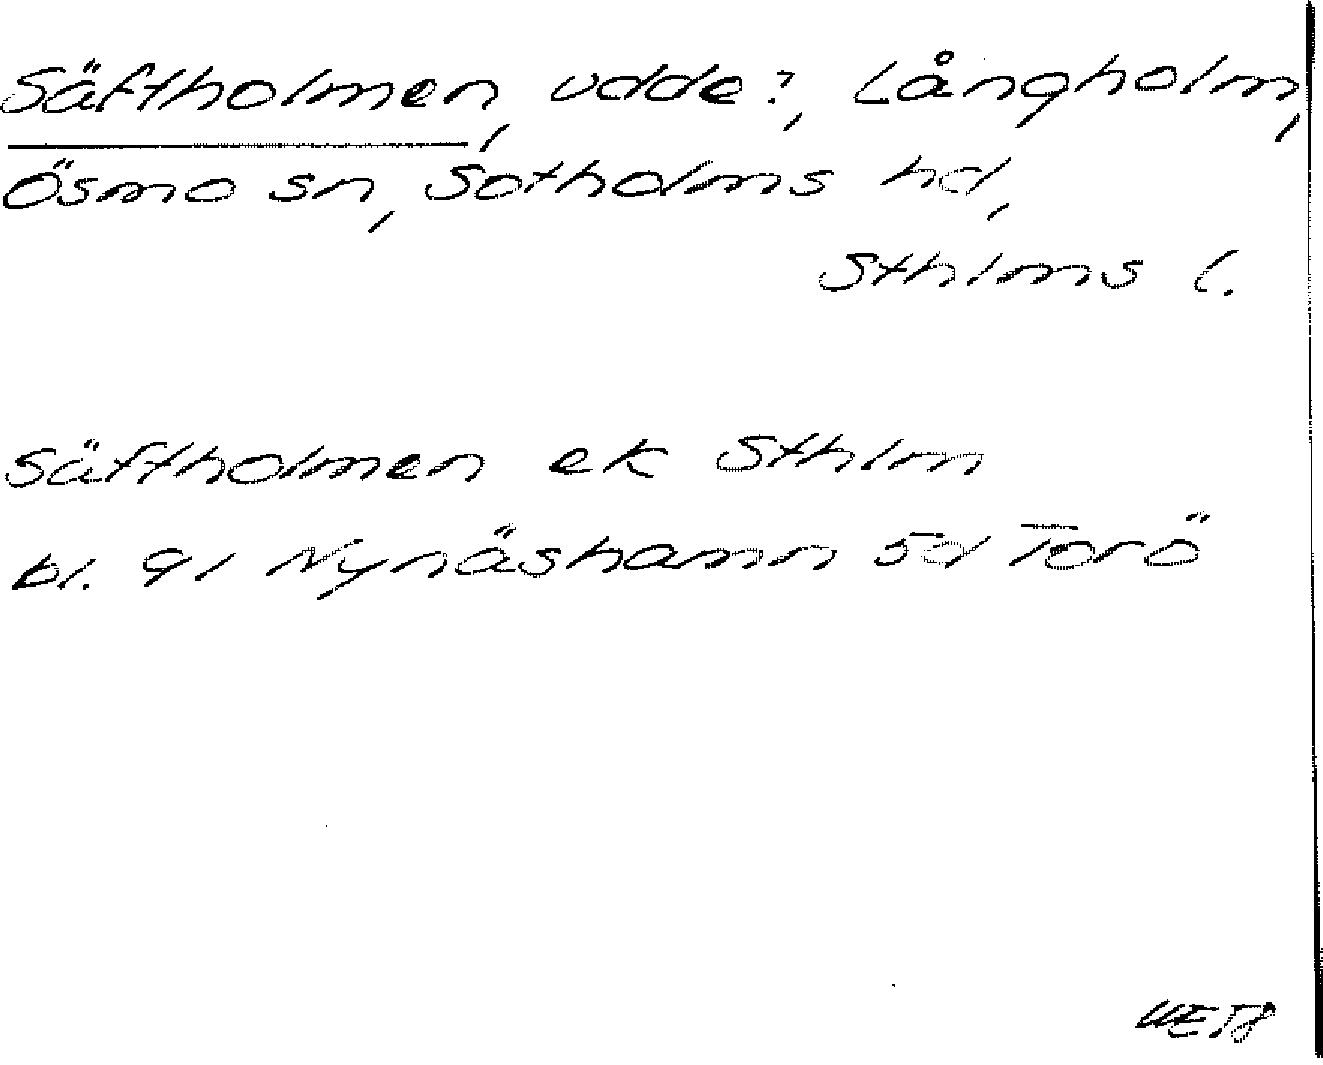 Säftholmen, udde?, Långholm,
Ösmo sn, Sotholms hd,
Sthlms l.
Säftholmen ek Sthlm
bl. 91 Nynäshamn 5d Torö